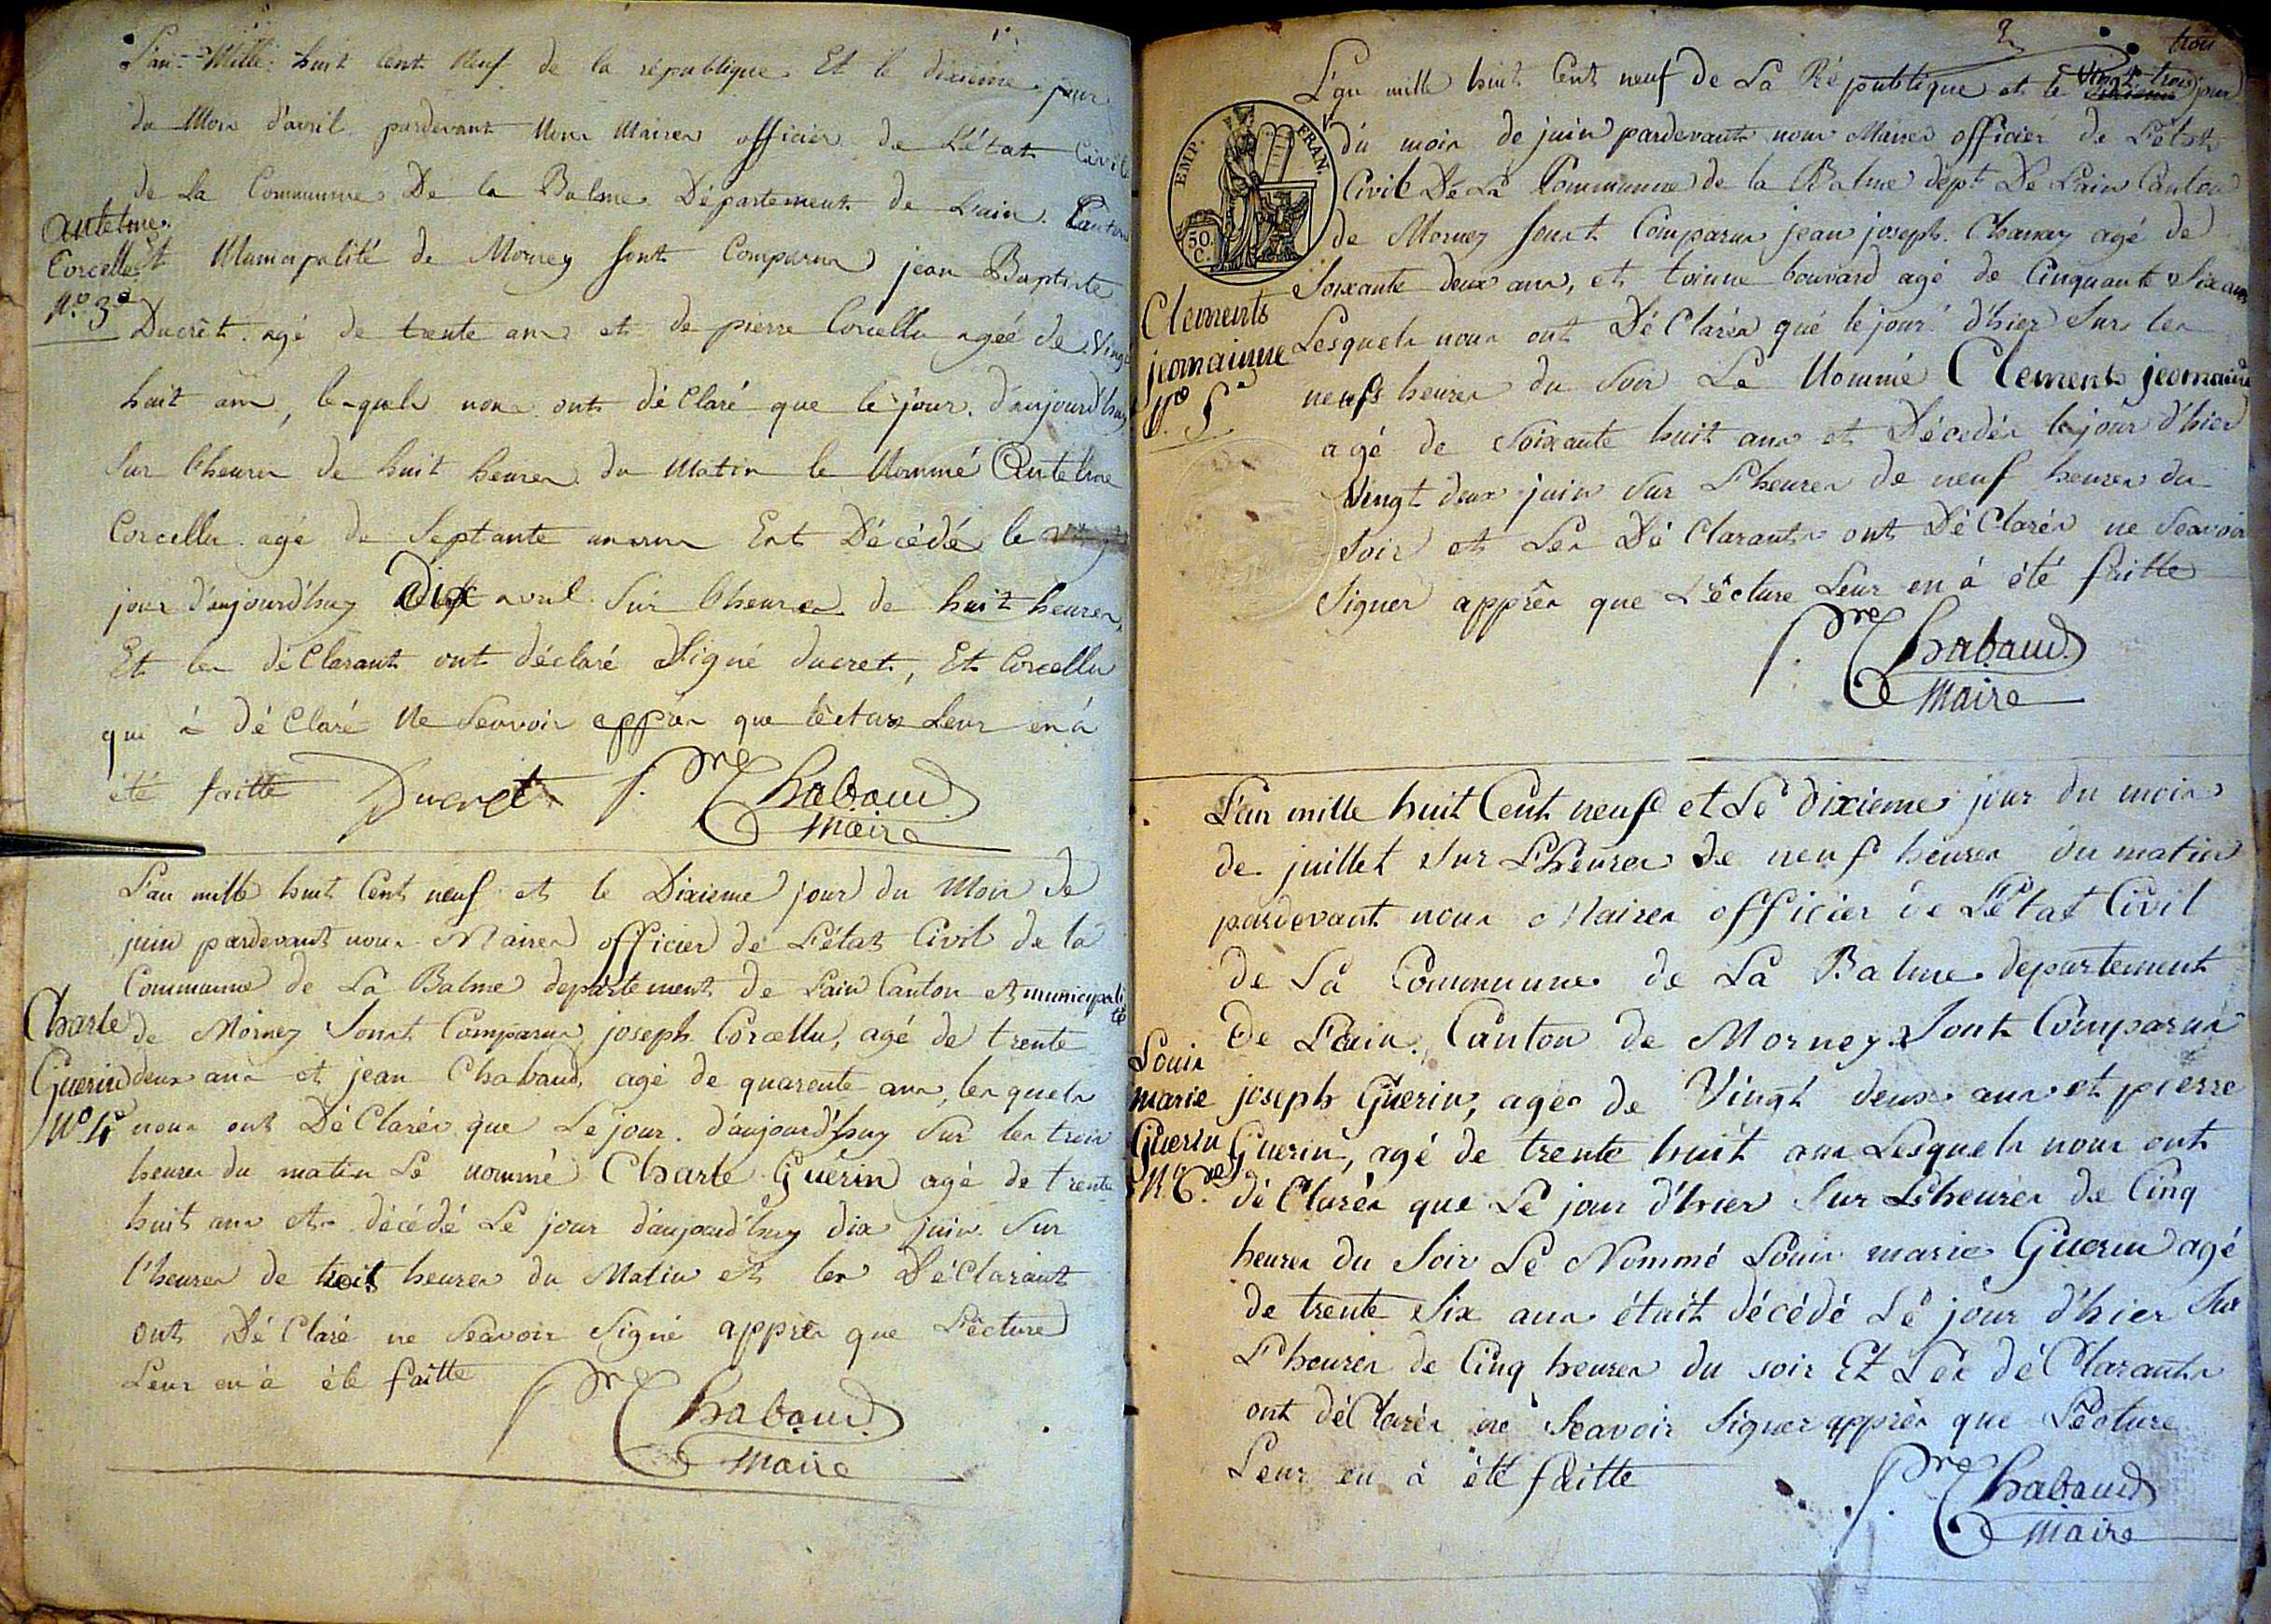 L'an Mille huit Cent Neuf de la république Et le dixieme jour
du Mois d'avril pardevant Nous Maires officier de L'état Civil
de La Communne De la Balme Département de L'ain Canton
Antelme
Corcelle
N.º 3e
Et Municipalité de Morney Sont Comparus jean Baptiste
Ducrêt agé de trente ans et de pierre Corcellu ageé de Vingt
huit ans, lesquels nous onts déClaré que le jour d'aujourd'huy
Sur l'heures de huit heures du Matin le Nommé Antelme
Corcellu agé de Septante Est Décédé le
jour d'aujourd'huy Dix avril Sur l'heures de huit heures,
Et les déClarant onts déclaré Signé ducret, Et Corcellu
qui à déClaré Ne Seavoir apprés que lécture Leur en à
été faitte Ducret P.re Chabaud
Maire
L'an mille huit Cent neuf et le Dixieme jour du Mois de
juin pardevant nous Maires officier de L'état Civil de la
Communne de La Balme departement de L'ain Canton et municipali
té
Charle
Guerin
Nº 4e
de Morney Sont Comparus joseph Corcellu, agé de trente
deux ans et jean Chabaud agé de quarente ans, lesquels
nous ont DéClarés que Le jour d'aujourd'huy Sur les trois
heures du matin Le nommé Charle Guérin agé de trente
huit ans et décédé Le jour d'aujourd'huy dix juin Sur
l'heures de trois heures du Matin et les DéClarant
ont DéClaré ne Seavoir Signé apprés que Lécture
Leur en à été faitte
P.re Chabaud
Maire
2
trois
L'an mille huit Cent neuf de La République et le Vingt trois jour
EMP. FRAN.
50.
C.
du mois de juin pardevant nous Maires officier de L'état
Civil De La Communne de la Balme dépt De L'ain Canton
de Morney Sont Comparus jean joseph Chanay agé de
Soixante deux ans, et toinne bouvard agé de Cinquante Six ans
Clements
jeomainne
Nº 5e
Lesquels nous ont DéClarés que le jour d'hier Sur les
neufs heures du Soir Le Nommé Clements jeomainne
agé de Soixante huit ans et Décedés le jour d'hier
Vingt deux juin Sur L'heures de neuf heures du
Soir et Les DéClarants ont DéClarés ne Seavoir
Signer apprês que Lécture Leur en à été faitte
P.re Chabaud
Maire
L'an mille huit Cent neuf et Le dixieme jour du mois
de juillet Sur L'heures de neuf heures du matin
pardevant nous Maires officier de L'état Civil
de La Communne de La Balme departement
De L'ain Canton de Morney Sont Comparus
Louis
marie
Guerin
N. 6.me
joseph Guerin, agés de Vingt deux ans et pierre
Guerin, agé de trente huit ans Lesquels nous ont
déClarés que Le jour d'hier Sur L'heures de Cinq
heures du Soir Le Nommé Louis marie Guerin agé
de trente Six ans était décédé Le jour d'hier Sur
L'heures de Cinq heures du soir Et Les déClarants
ont déClarés ne Seavoir Signer apprès que Lécture
Leur en à été faitte
P.re Chabaud
Maire